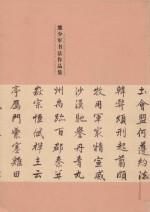 少军书法作品集
土會盟何遵約法
韓弊煩刑起翦頗
牧用軍最精宣威
沙漠馳譽丹青九
州禹跡百郡秦并
嶽宗恒岱禪主云
亭鴈門紫塞雞田